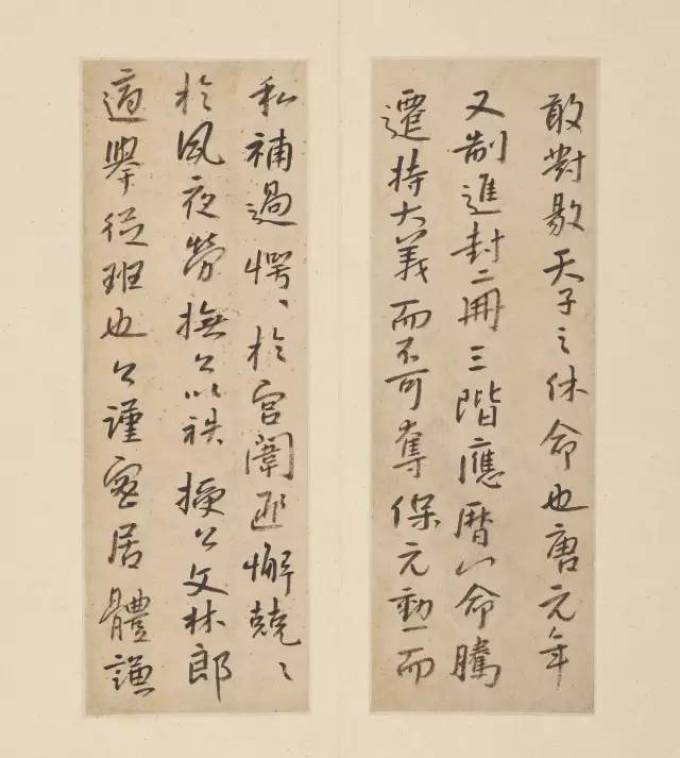 敢對敭天子之休命也唐元年
又制進封二冊三階應曆以命騰
遷持大義而不可奪保元勳一而
私補過愕〻於宮闈匪懈兢〻
於夙夜勞撫公以秩授公文林郎
適舉從班也公謹密居體謙